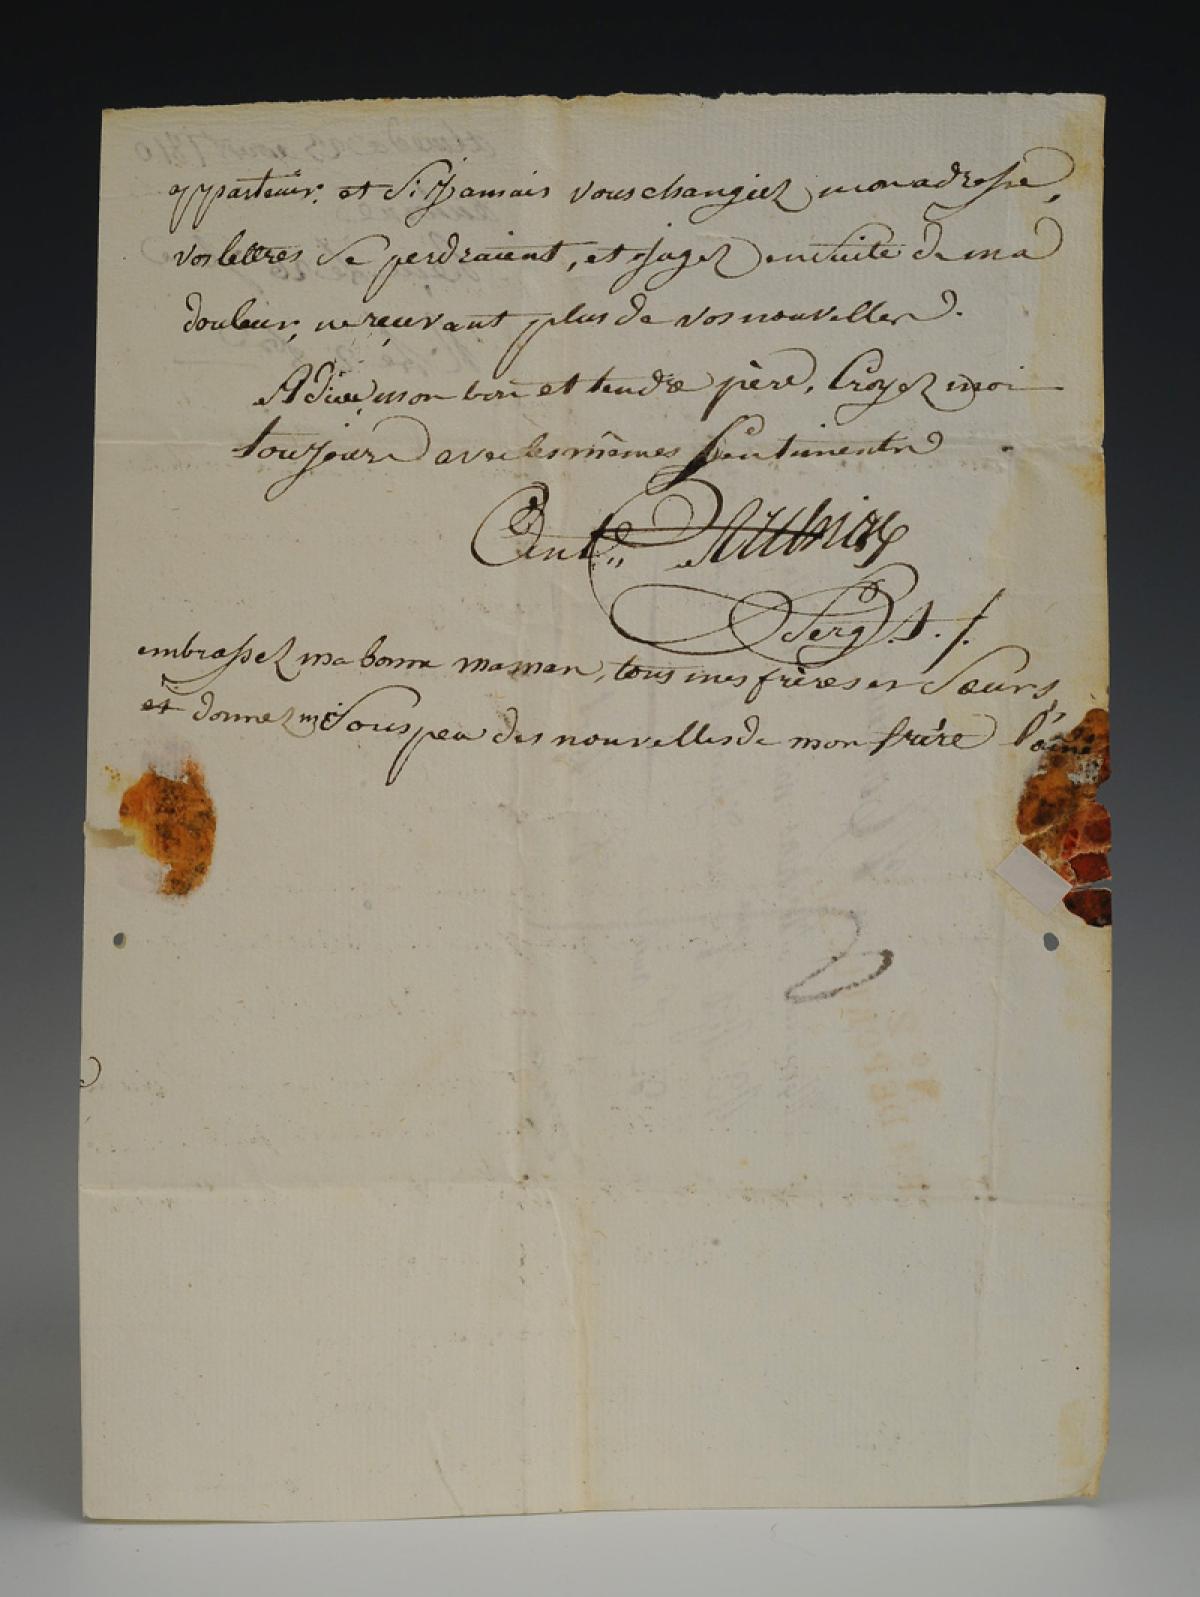 appartenir. et Si Jamais vous changiez mon adresse,
vos lettres se perdraient, et jugez ensuite de ma
douleur, ne reçevant plus de vos nouvelles.
Adieu, mon bon et tendre père, Croyez moi
toujours avec les mêmes Sentiments
Serg. t. f.
embrassez ma bonne maman, tous mes frères et Sœurs,
et donnez mi Sous peu des nouvelles de mon frère l'ainé